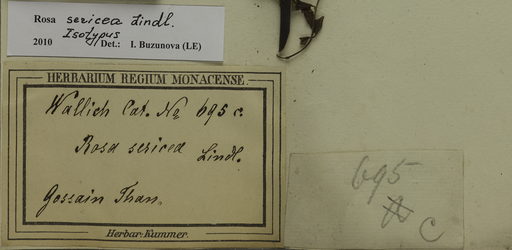 Rosa sericea Lindl.
Isotypus
2010 Det.: I. Buzunova (LE)
HERBARIUM REGIUM MONACENSE.
Wallich Cat. No 695 c.
Rosa sericea Lindl.
Gossain Than.
Herbar. Kummer.
695
C